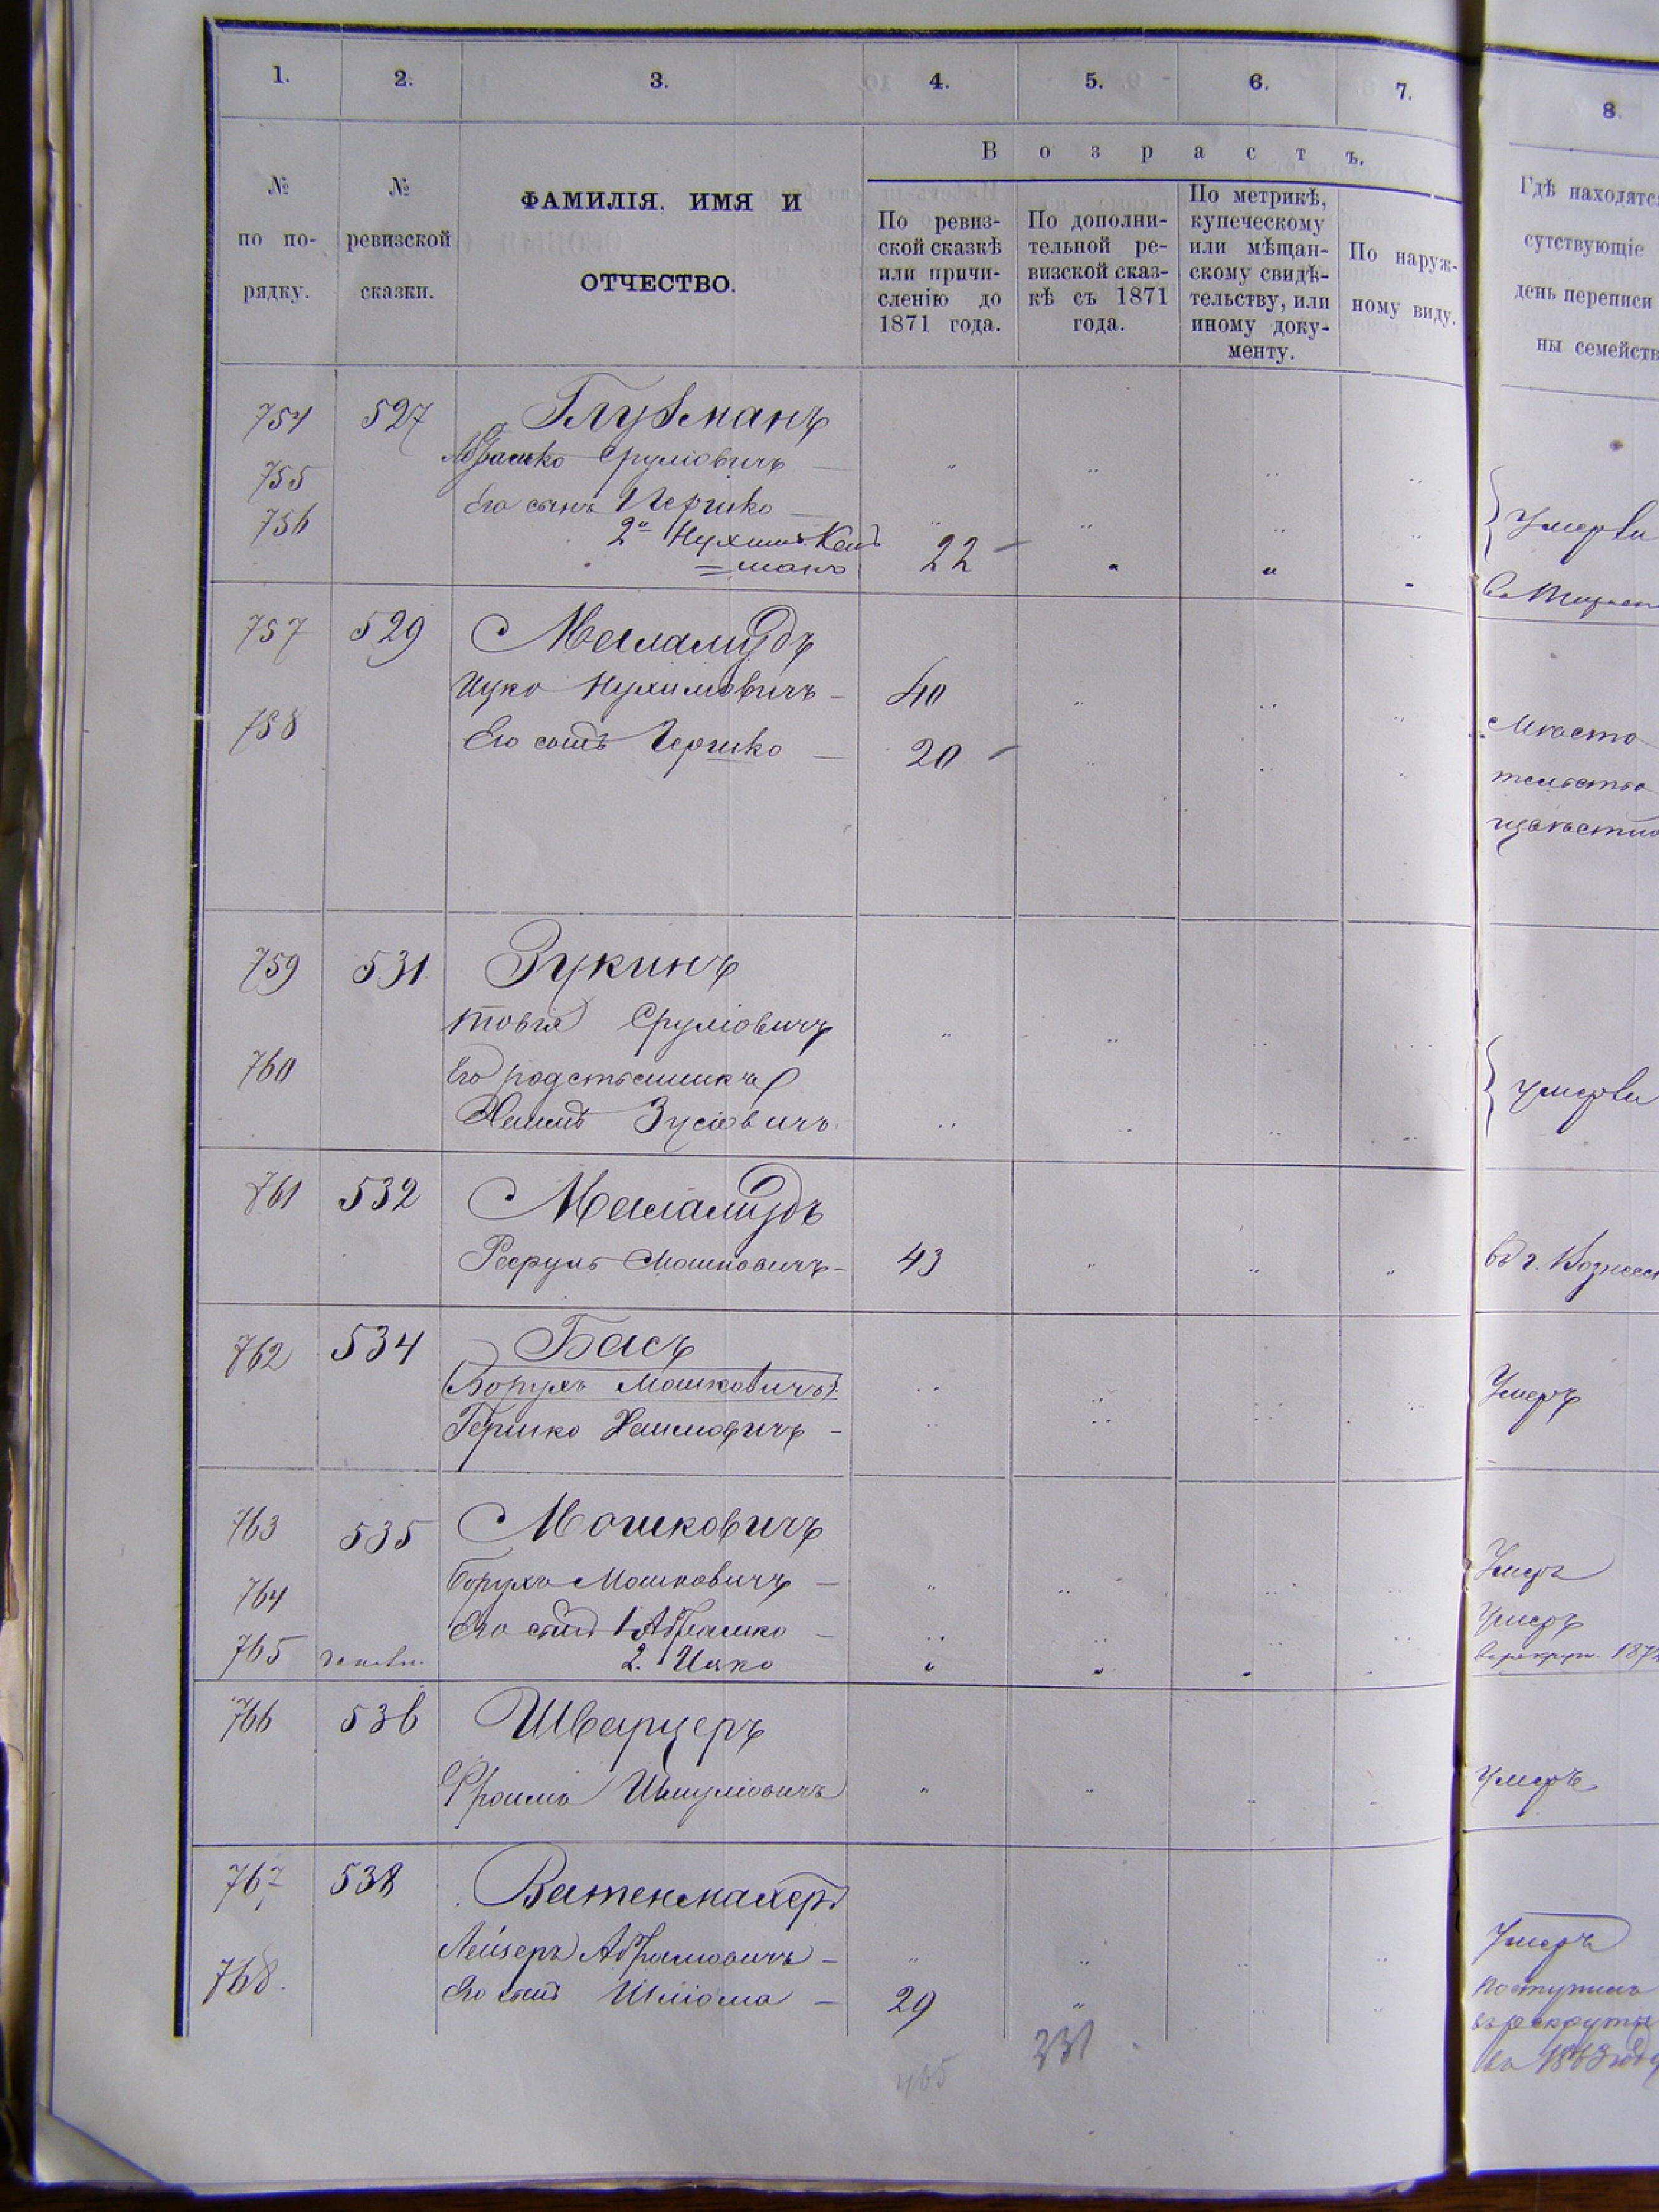 1. 2. 3. 4. 5. 6. 7. 8.
№ по порядку.
№ ревизской сказки.
ФАМИЛІЯ, ИМЯ И
ОТЧЕСТВО.
Возрастъ.
По ревиз-
ской сказкѣ
или причи-
сленію до
1871 года.
По дополни-
тельной ре-
визской сказ-
кѣ съ 1871
года.
По метрикѣ,
купеческому
или мѣщан-
скому свидѣ-
тельству, или
иному доку-
менту.
По наруж-
ному виду.
Гдѣ находятс
сутствующіе
день переписи
ны семейств
754 527 Глузманъ
755 Абрамко Сруліовичъ — " " " "
756 Его сынъ Гершко — " " " " Умерли
2й Нухимъ 22 " " "
757 529 Меламудъ
Ицко Нухимовичъ — 40 " " "
758 Его сынъ Гершко — 20 " " " Мѣсто
тельство
759 531. Зукинъ
Товія Сруліовичъ " " " "
760 Его родственникъ Умерли
Хаимъ Зусіовичъ " " " "
761 532 Меламудъ
Мошковичъ — 43 " " " въ г. Вознесен
762 534 Басъ
(Борухъ Мошковичъ) Умеръ
Гершко Хаимовичъ — " " " "
763 535 Мошковичъ
Борухъ Мошковичъ — " " " " Умеръ
764 Его сынъ 1 Абрамко — " " " " Умеръ
765 2. Ицко " " " " 187
766 536 Шварцеръ
Фроимъ Шмуліовичъ " " " " Умеръ
767 538 Ватенмахеръ
Лейзеръ Абрамовичъ — " " " " Умеръ
768. Его сынъ Шліома — 29 " " " Поступилъ
въ рекруты
въ 1863 году
465 231